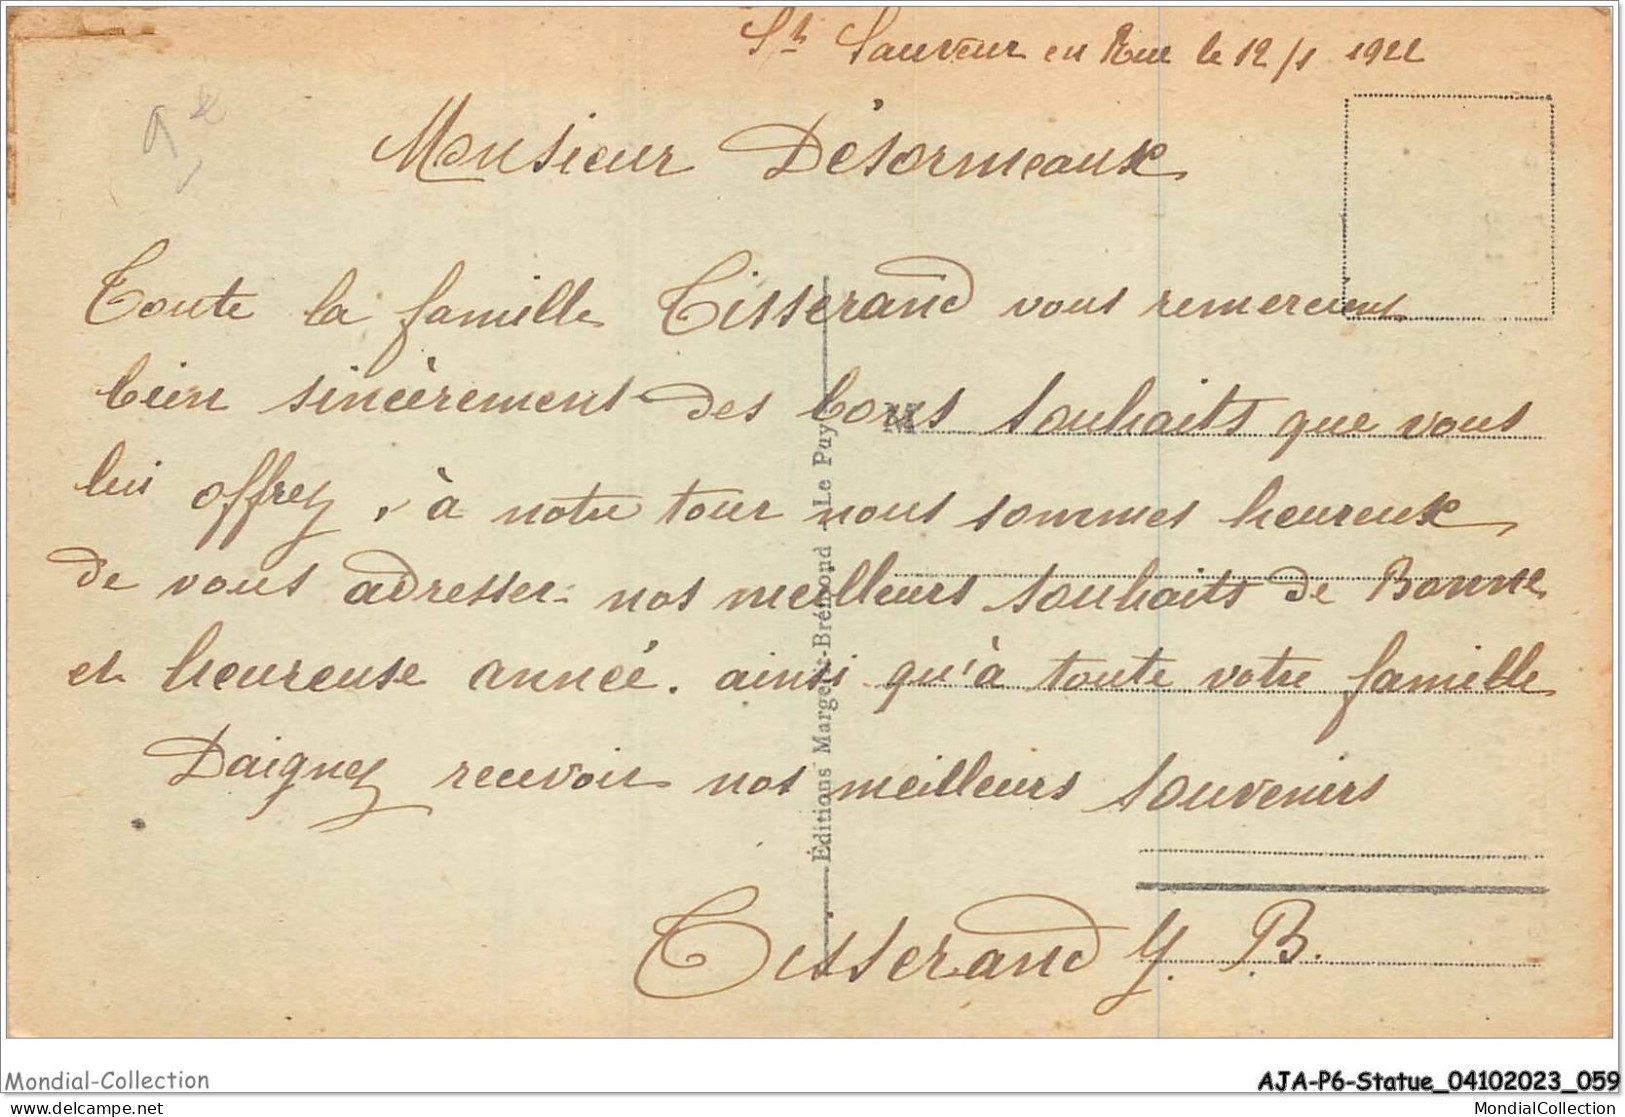 St Sauveur en Rue le 12/1 1922
Monsieur Désormeaux
Toute la famille Tisserand vous remercient
bien sincèrement des bons souhaits que vous
lui offrez, à notre tour nous sommes heureux
de vous adresser nos meilleurs souhaits de Bonne
et heureuse année. ainsi qu'à toute votre famille
Daignez recevoir nos meilleurs souvenirs
Tisserand Y. B.
M
Éditions Margerit-Brémond - Le Puy
Mondial-Collection
AJA-P6-Statue_04102023_059
delcampe.net
MondialCollection